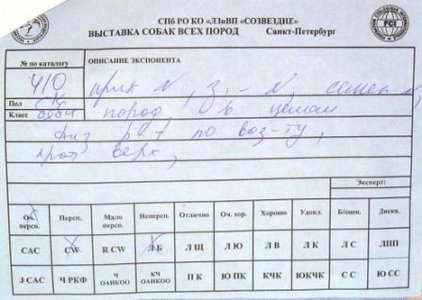 СПб РО КО «ЛЗиВП «СОЗВЕЗДИЕ»
ВЫСТАВКА СОБАК ВСЕХ ПОРОД Санкт-Петербург
FCI
№ по каталогу
410
ОПИСАНИЕ ЭКСПОНЕНТА
Пол
Класс
пород, в целом
физ по воз-ту,
Эксперт:
Оч. персп. Персп. Мало персп. Неперсп. Отлично Оч. хор. Хорошо Удовл. Б/оцен. Дискв.
САС CW R CW ЛБ Л Щ Л Ю Л В Л К Л С ЛПП
J САС Ч РКФ Ч ОАНКОО КЧ ОАНКОО П К Ю ПК КЧК ЮКЧК С С Ю СС